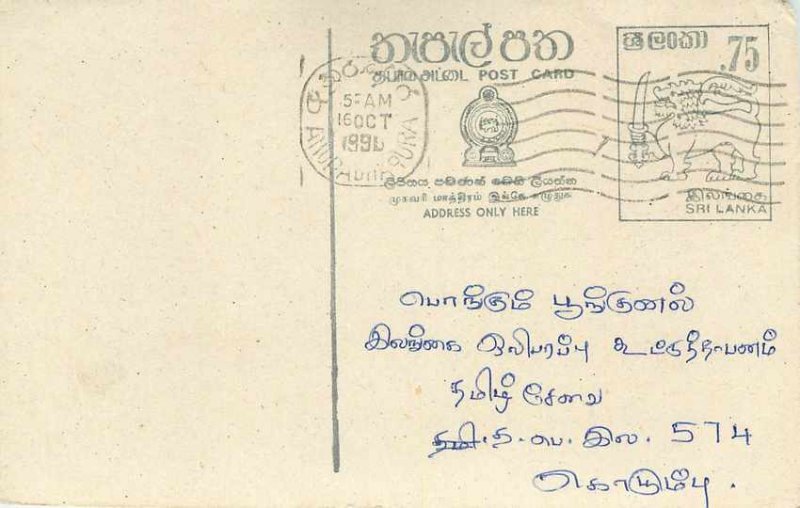 තැපැල් පත
தபால் அட்டை POST CARD
ශ්‍රී ලංකා
.75
5 AM
16 OCT
ANURADHAPURA
ලිපිනය පමණක් මෙහි ලියන්න
முகவரி மாத்திரம் இங்கே எழுதுக
ADDRESS ONLY HERE
இலங்கை
SRI LANKA
பொங்கும் பூங்குனல்
இலங்கை ஒலிபரப்பு கூட்டுத்தாபனம்
தமிழ் சேவை
த. பெ. இல. 574
கொழும்பு.